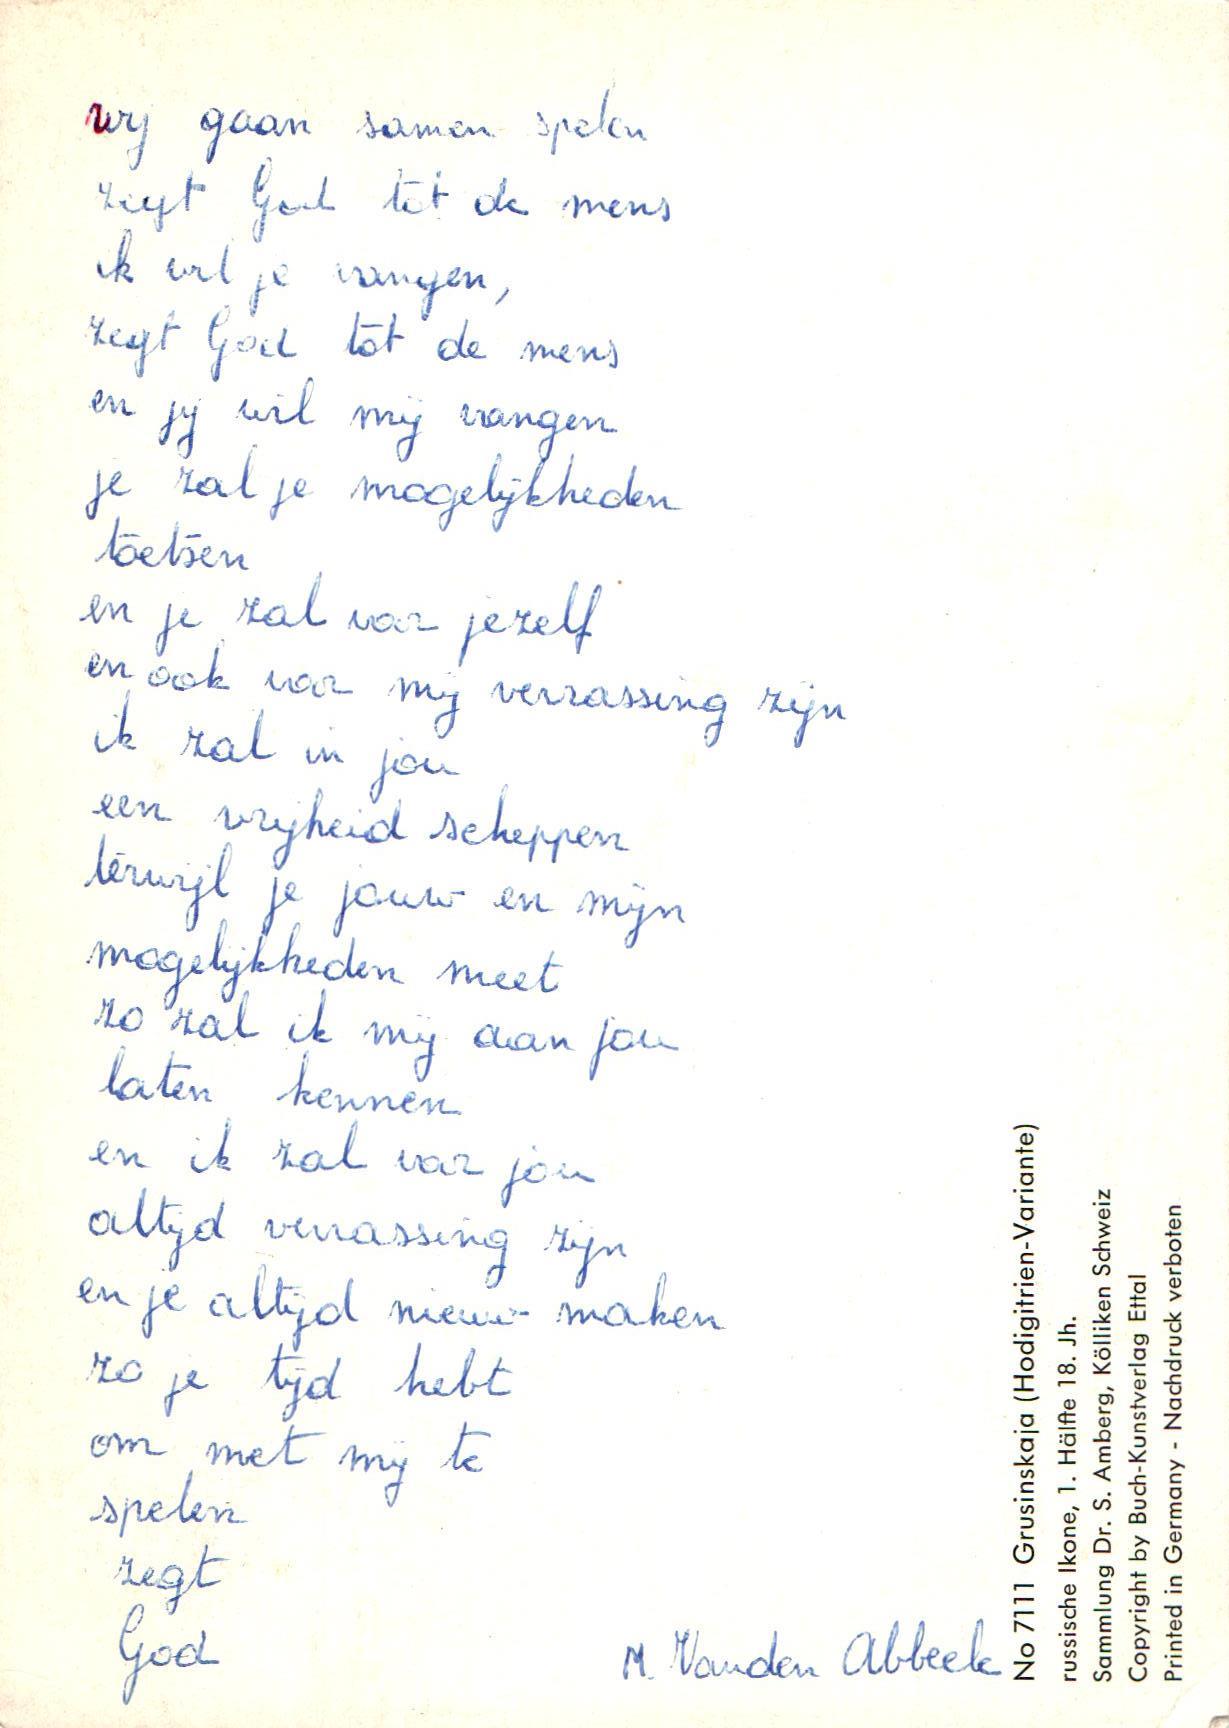 wij gaan samen spelen
zegt God tot de mens
ik wil je vangen,
zegt God tot de mens
en jij wil mij vangen
je zal je mogelijkheden
toetsen
en je zal voor jezelf
en ook voor mij verrassing zijn
ik zal in jou
een vrijheid scheppen
terwijl je jouw en mijn
mogelijkheden meet
zo zal ik mij aan jou
laten kennen
en ik zal voor jou
altijd verrassing zijn
en je altijd nieuw maken
zo je tijd hebt
om met mij te
spelen
zegt
God
M. Vanden Abbeele
No 7111 Grusinskaja (Hodigitrien-Variante)
russische Ikone, 1. Hälfte 18. Jh.
Sammlung Dr. S. Amberg, Kölliken Schweiz
Copyright by Buch-Kunstverlag Ettal
Printed in Germany - Nachdruck verboten